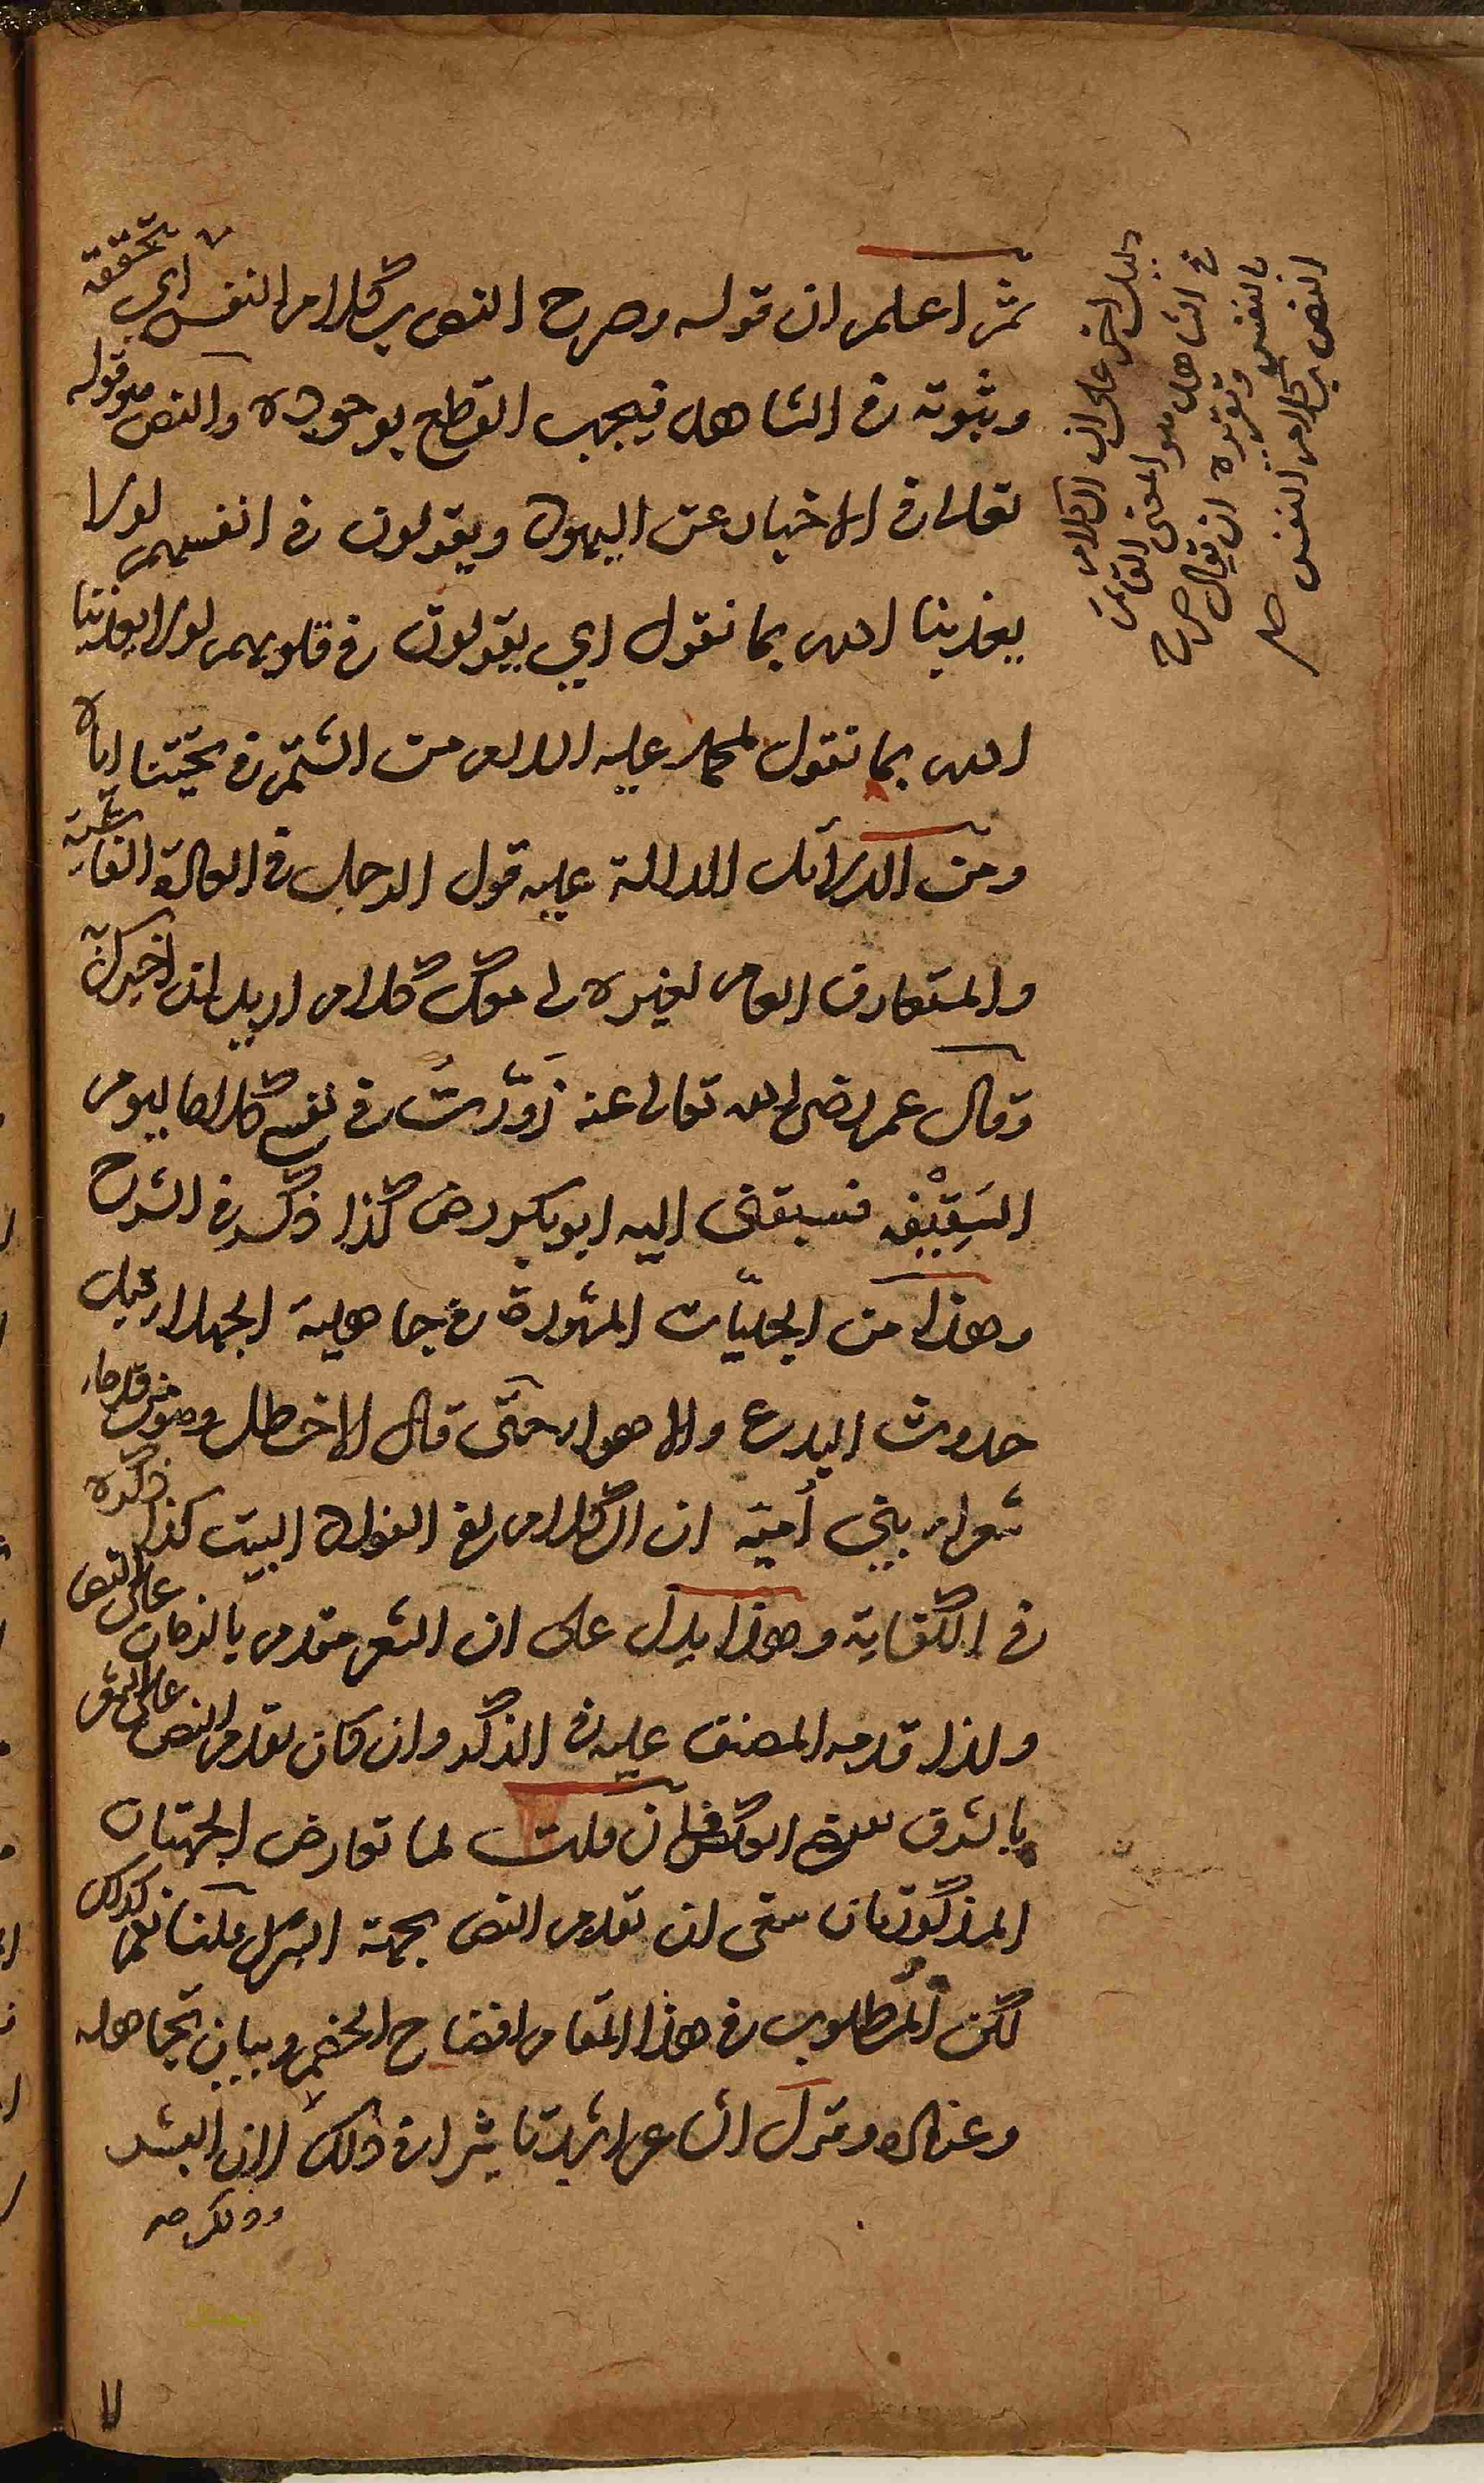 ثم اعلم ان قوله وصرح النص بكلام النفس اي تحققه
وثبوته في الشاهد فيجب القطع بوجوده والنص هو قوله
تعالى في الاخبار عن اليهود ويقولون في انفسهم لولا
يعذبنا الله بما نقول اي يقولون في قلوبهم لولا يعذبنا
الله بما نقول لمحمد عليه من الشتم في تحيتنا اياه
ومن الدلائل الدالة عليه قول الرجل في العادة الفاشية
والمتعارف العام لغيره لي معك كلام اريد ان اخبرك به
وقال عمر رضي الله تعالى عنه زَوَّرتُ في نفسي كلاما يوم
السَقِيْفه فسبقني اليه ابوبكر رض كذا ذكر في الشرح
وهذا من الجليّات المشهورة في جاهلية الجهلاء قبل
حدوث البدع والاهواء حتى قال الاخطل وهو من قدماء
شعراء بني أمية ان الكلام لفي الفواد البيت كذا ذكره
في الكفاية وهذا يدل على ان الشعر مقدم بالزمان على النص
ولذا قدمه المصنف عليه في الذكر وان كان تقدم النص على الشعر
بالشرف فان قلت لما تعارض الجهتان
المذكورتان ان تقدم النص بجهة الشرف قلنا نعم كذلك
لكن المطلوب في هذا المقام افتضاح الخصم وبيان تجاهله
وعناده وقول الشاعر اشد تاثيرا في ذلك لان البشر
دليل اخر على ان الكلام
في الشاهد هو المعنى القائم
بالنفس وتقريره ان يقال صرح
النص بكلام النفس